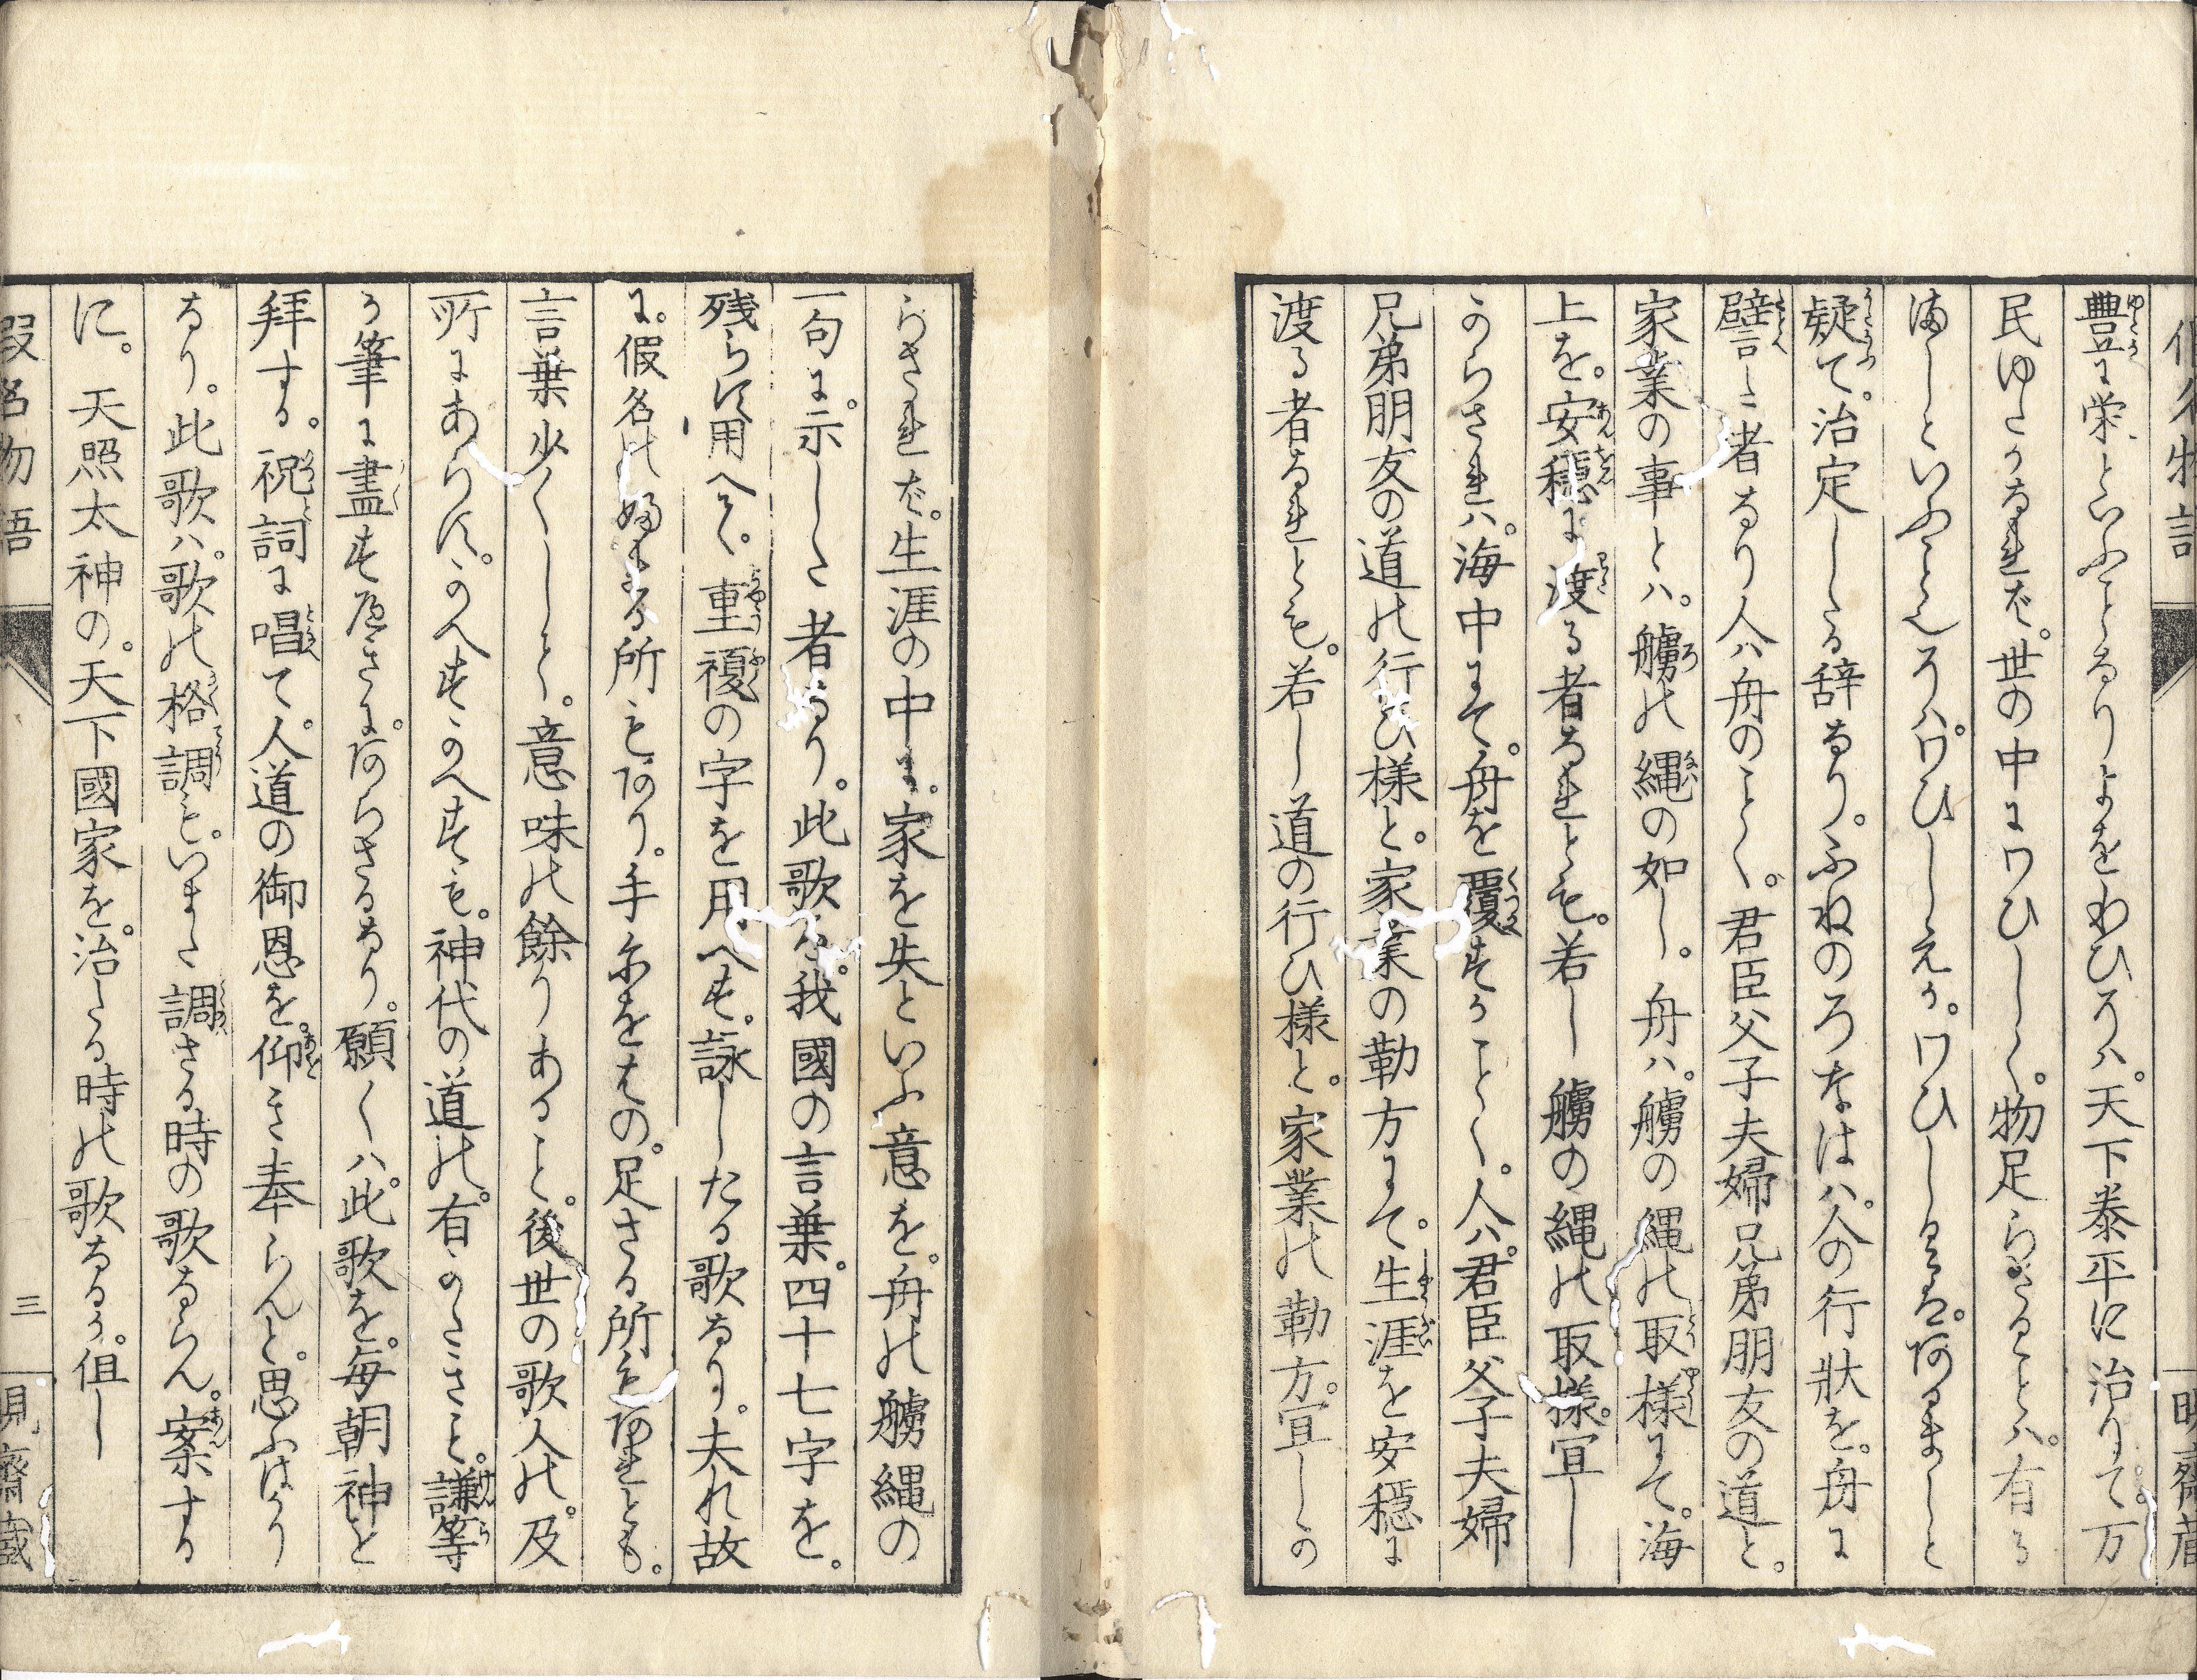 假名物語
豊に栄といふことなりよをわひろハ。天下泰平に治りて。万
民ゆたかなれば。世の中にワひしく。物足らざることハ。有る
満しといふことえろハ。ワひしえか。ワひしるゑば。阿るましと
疑て。治定したる辞なり。ふねのろなはハ。人の行状を。舟に
譬た者なり人ハ舟のことく。君臣父子夫婦兄弟朋友の道と。
家業の事とハ。艣の縄の如し。舟ハ。艣の縄の取様にて。海
上を。安穏に渡る者なれとも。若し艣の縄の取様。宜し
からされハ。海中にて。舟を覆すかことく。人ハ。君臣父子夫婦
兄弟朋友の道の行ひ様と。家業の勤方にて。生涯を安穏に
渡る者なれとも。若し道の行ひ様と。家業の勤方。宜しか
らされば。生涯の中に。家を失といふ意を。舟の艣縄の
一句に。示した者なり。此歌ハ。我國の言葉。四十七字を。
残らす用へて。重複の字を用へす。詠したる歌なり。夫れ故
に。假名の婦まる所も阿り。手尓をはの。足さる所も。阿れとも。
言葉少くして。意味の餘りあること。後世の歌人の。及
所にあらす。かへすかへすも。神代の道の。有かたさと。謙等
か筆に盡す尽さに。阿らさるなり。願くハ。此歌を。毎朝神と
拝する。祝詞に唱て。人道の御恩を。仰き奉らんと。思ふはかり
なり。此歌ハ。歌の格調も。いまた調さる時の歌ならん。案する
に。天照太神の。天下國家を。治たる時の歌なるか。但し
假名物語
三